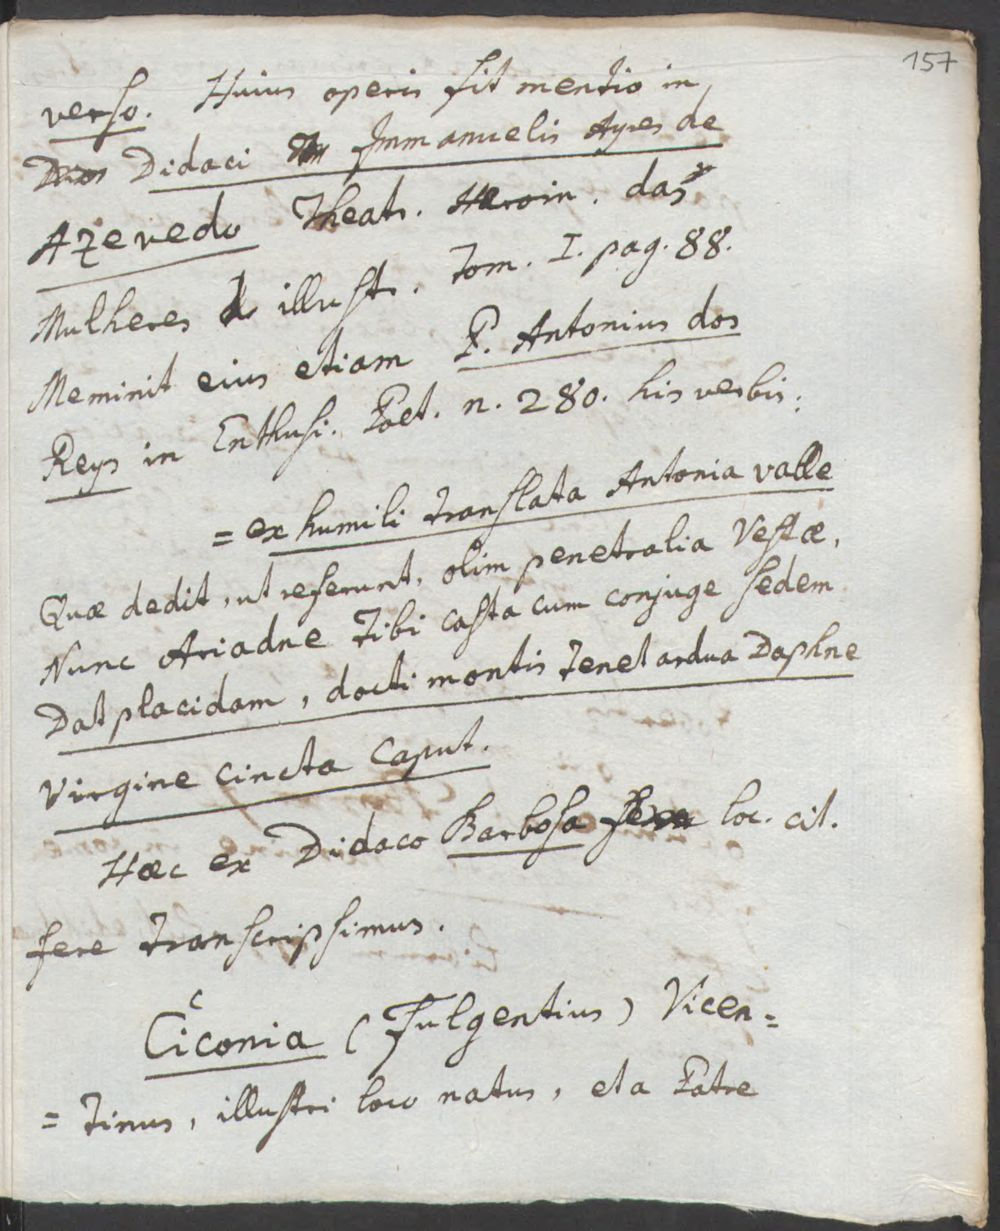 157
verso. Huius operis fit mentio in
Didaci Immanuelis Ayres de
Azevedo Theatr. Heroin. das
Mulheres illustr. Tom. I. pag. 88.
Meminit eius etiam P. Antonius dos
Reys in Enthusi. Poet. n. 280. his verbis:
= ex humili translata Antonia valle
Quæ dedit, ut referunt, olim penetralia Vestæ,
Nunc Ariadne Tibi casta cum conjuge sedem
Dat placidam, docti montis tenet ardua Daphne
Virgine cincta Caput.
Hæc ex Didaco Barbosa loc. cit.
fere transcripsimus.
Ciconia (Fulgentius) Vicen=
=tinus, illustri loco natus, et a Patre